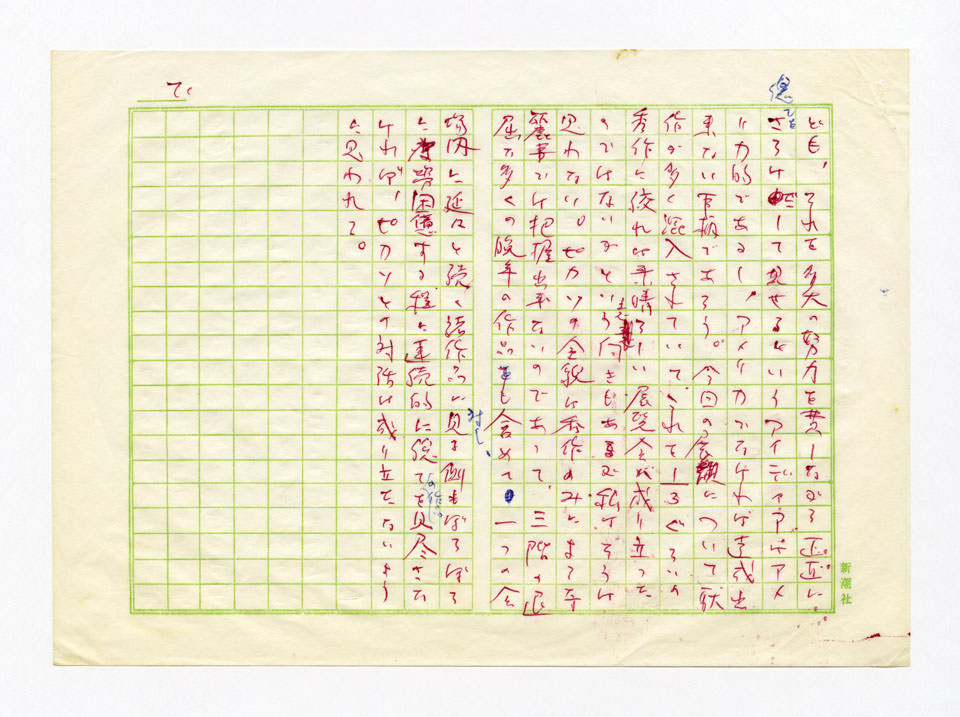 総てを
ども、それを多大の努力を費しながら正直に
さらけ出して見せるというアイディアはアメ
リカ的であるし、アメリカでなければ達成出
来ない事柄であろう。今回の会 について駄
作が多く混入されていて、これを1/3ぐらいの
秀作に絞れば素晴らしい展覧会が成り立った
のではないかという向きもあるが私はそうは
思わない。ピカソの全貌は秀作のみによる
では把握出来ないのであって、三階の退
屈な多くの晩年の作品をも含めて 一つの会
場内に延々と続く諸作品に対し、見る側もぼろぼろ
に疲労困憊する程に連続的に総ての作品を見尽さな
ければ、ピカソとの対 は成り立たないよう
に思われる。
新潮社